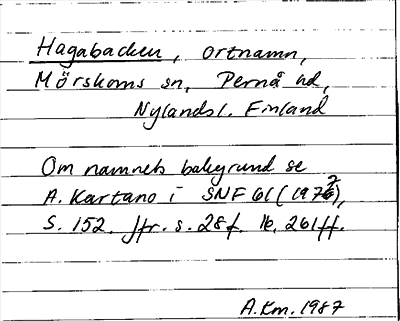 Hagabacken, ortnamn,
Mörskoms sn, Pernå hd,
Nylands l. Finland
Om namnets bakgrund se
A. Kartano i SNF 61 (1972),
S. 152. Jfr. s. 28f. 16, 261ff.
A.Km. 1987